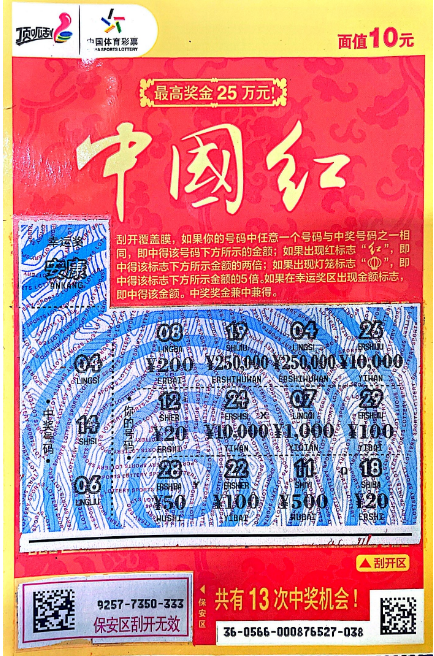 顶呱刮
中国体育彩票
CHINA SPORTS LOTTERY
面值10元
最高奖金25万元!
中國红
刮开覆盖膜，如果你的号码中任意一个号码与中奖号码之一相
同，即中得该号码下方所示的金额；如果出现红标志“红”，即
中得该标志下方所示金额的两倍；如果出现灯笼标志“”，即
中得该标志下方所示金额的5倍。如果在幸运奖区出现金额标志，
即中得该金额。中奖奖金兼中兼得。
幸运奖
安康
ANKANG
中奖号码
04
LINGSI
14
SHISI
06
LINGLIU
你的号码
08 19 04 26
LINGBA SHIJIU LINGSI ERSHILIU
¥200 ¥250,000 ¥250,000 ¥10,000
ERBAI ERSHIWUWAN ERSHIWUWAN YIWAN
12 24 07 29
SHIER ERSHISI LINGQI ERSHIJIU
¥20 ¥10,000 ¥1,000 ¥100
ERSHI YIWAN YIQIAN YIBAI
28 22 11 18
ERSHIBA ERSHIER SHIYI SHIBA
¥50 ¥100 ¥500 ¥20
WUSHI YIBAI WUBAI ERSHI
▲刮开区
9257-7350-333
保安区刮开无效
保安区
共有13次中奖机会！
36-0566-000876527-038